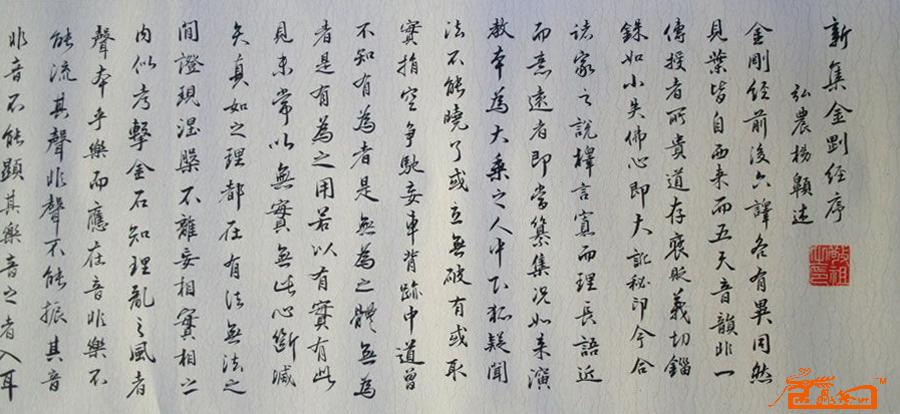 新集金剛經序
弘農楊顒述
金剛經前後六譯各有異同然
見葉皆自西來而五天音韻非一
傳授者所貴道存褒貶義切錙
銖如小失佛心即大訛秘印今合
諸家之說擇言寡而理長語近
而意遠者即當纂集況如來演
教本為大乘之人中下狐疑聞
法不能曉了或立無破有或取
實指空爭馳妄車背跡中道曾
不知有為者是無為之體無為
者是有為之用若以有實有此
見未常以無實無此心斷滅
矣真如之理都在有法無法之
間證現涅槃不離妄相實相之
內似考擊金石知理亂之風者
聲本乎樂而應在音非樂不
能流其聲非聲不能振其音
非音不能顯其樂音之者入耳